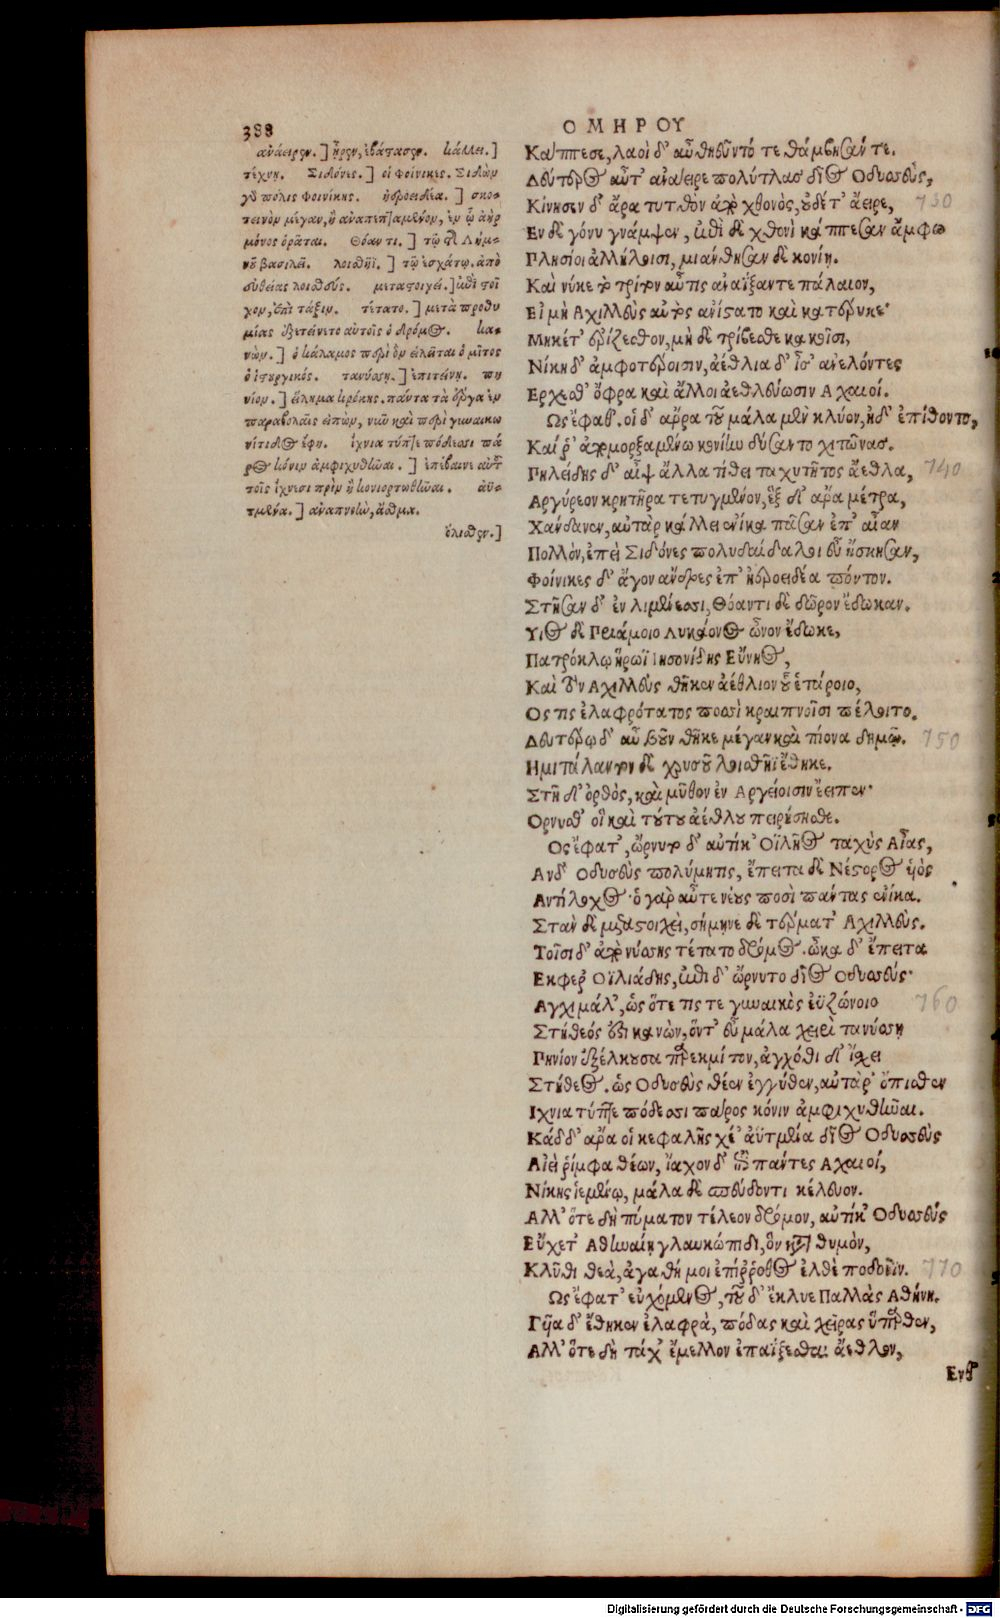 388
ΟΜΗΡΟΥ
ἀνάειρεν.] ἦρεν, ἐβάστασεν. κάλλει.]
τέχνη. Σιδόνες.] οἱ Φοίνικες. Σιδὼν
γὸ πόλις Φοινίκης. ἠεροειδέα.] σκο-
τεινὸν μέγαν, ἢ ἀναπεπταμένον, ἐν ᾧ ἀὴρ
μόνος ὁρᾶται. Θόαντι.] τῷ τῆς Λήμ-
νου βασιλεῖ. λοισθήϊ.] τῷ ἐσχάτῳ. ἀπὸ
εὐθείας λοισθεύς. μεταστοιχεί.] ἐπὶ τοῖ
χον, ἐπὶ τάξιν. τέτατο.] μετὰ προθυ
μίας ἐξετείνετο αὐτοῖς ὁ δρόμος. κα-
νών.] ὁ κάλαμος περὶ ὃν εἱλεῖται ὁ μίτος
ὁ ἱστουργικός. τανύσῃ.] ἐπιτείνῃ. πη
νίον.] εἵλημα κρόκης. πάντα τὰ ἔργα ἐν
παραβολαῖς εἰπὼν, νῦν καὶ περὶ γυναικω
νίτιδος ἔφη. ἴχνια τύπτε πόδεσσι πά
ρος κόνιν ἀμφιχυθῆναι.] ἐπέβαινε αὐτοῦ
τοῖς ἴχνεσι πρὶν ἢ κονιορτωθῆναι. ἀϋ-
τμένα.] ἀναπνοὴν, ἆσθμα.
ἔλισθεν.]
Κάππεσε, λαοὶ δ' αὖ θηεῦντό τε θάμβησάν τε.
Δεύτερος αὖτ' ἀνάειρε πολύτλας δῖος Οδυσσεὺς,
Κίνησεν δ' ἄρα τυτθὸν ἀπὸ χθονὸς, οὐδέτ' ἄειρε, 730
Εν δὲ γόνυ γνάμψεν, ἐπὶ δὲ χθονὶ κάππεσαν ἄμφω
Πλησίοι ἀλλήλοισι, μιάνθησαν δὲ κονίῃ.
Καὶ νύκε τὸ τρίτον αὖτις ἀναΐξαντε πάλαιον,
Εἰ μὴ Αχιλλεὺς αὐτὸς ἀνίστατο καὶ κατέρυκε·
Μηκέτ' ἐρίζεσθον, μὴ δὲ τρίβεσθε κακοῖσι,
Νίκη δ' ἀμφοτέροισιν, ἀέθλια δ' ἶσ' ἀνελόντες
Ερχεσθ' ὄφρα καὶ ἄλλοι ἀεθλεύωσιν Αχαιοί.
Ως ἔφαθ', οἱ δ' ἄρρα τοῦ μάλα μὲν κλύον, ἠδ' ἐπίθοντο,
Καί ῥ' ἀπομορξαμένω κονίην δύσαντο χιτῶνας.
Πηλείδης δ' αἶψ' ἄλλα τίθει ταχυτῆτος ἄεθλα, 740
Αργύρεον κρητῆρα τετυγμένον, ἓξ δ' ἄρα μέτρα,
Χάνδανεν, αὐτὰρ κάλλει ἐνίκα πᾶσαν ἐπ' αἶαν
Πολλὸν, ἐπεὶ Σιδόνες πολυδαίδαλοι εὖ ἤσκησαν,
Φοίνικες δ' ἄγον ἄνδρες ἐπ' ἠεροειδέα πόντον.
Στῆσαν δ' ἐν λιμένεσσι, Θόαντι δὲ δῶρον ἔδωκαν.
Υἷος δὲ Πριάμοιο Λυκάονος ὦνον ἔδωκε,
Πατρόκλῳ ἥρωϊ Ιησονίδης Εὔνηος,
Καὶ τὸν Αχιλλεὺς θῆκεν ἀέθλιον οὗ ἑτάροιο,
Ος τις ἐλαφρότατος ποσσὶ κραιπνοῖσι πέλοιτο.
Δευτέρῳ δ' αὖ βοῦν θῆκε μέγαν καὶ πίονα δημῷ. 750
Ημιτάλαντον δὲ χρυσοῦ λοισθῆϊ ἔθηκε.
Στῆ δ' ὀρθὸς, καὶ μῦθον ἐν Αργείοισιν ἔειπεν·
Ορνυσθ' οἳ καὶ τούτου ἀέθλου πειρήσεσθε.
Ως ἔφατ', ὤρνυτο δ' αὐτίκ' Οϊλῆος ταχὺς Αἴας,
Ανδ' Οδυσεὺς πολύμητις, ἔπειτα δὲ Νέστορος ὑὸς
Αντίλοχος· ὁ γὰρ αὖτε νέους ποσὶ πάντας ἐνίκα.
Στὰν δὲ μεταστοιχεὶ, σήμηνε δὲ τέρματ' Αχιλλεύς.
Τοῖσι δ' ἀπὸ νύσσης τέτατο δρόμος. ὦκα δ' ἔπειτα
Εκφερ' Οϊλιάδης, ἐπὶ δ' ὤρνυτο δῖος Οδυσσεὺς·
Αγχι μάλ', ὡς ὅτε τίς τε γυναικὸς ἐϋζώνοιο 760
Στήθεός ἐστι κανὼν, ὅντ' εὖ μάλα χερσὶ τανύσσῃ
Πηνίον ἐξέλκουσα παρὲκ μίτον, ἀγχόθι δ' ἴσχει
Στήθεος. ὡς Οδυσεὺς θέεν ἐγγύθεν, αὐτὰρ ὄπισθεν
Ιχνια τύπτε πόδεσσι πάρος κόνιν ἀμφιχυθῆναι.
Κάδδ' ἄρα οἱ κεφαλῆς χέ' ἀϋτμένα δῖος Οδυσσεὺς
Αἰεὶ ῥίμφα θέων, ἴαχον δ' ἐπὶ πάντες Αχαιοί,
Νίκης ἱεμένῳ, μάλα δὲ σπεύδοντι κέλευον.
Αλλ' ὅτε δὴ πύματον τέλεον δρόμον, αὐτίκ' Οδυσσεὺς
Εὔχετ' Αθηναίῃ γλαυκώπιδι, ὃν κατὰ θυμὸν,
Κλῦθι θεὰ, ἀγαθή μοι ἐπίῤῥοθος ἐλθὲ ποδοῖϊν. 770
Ως ἔφατ' εὐχόμενος, τοῦ δ' ἔκλυε Παλλὰς Αθήνη.
Γυῖα δ' ἔθηκεν ἐλαφρὰ, πόδας καὶ χεῖρας ὕπερθεν,
Αλλ' ὅτε δὴ τάχ' ἔμελλον ἐπαΐξεσθαι ἄεθλον,
Ενθ'
Digitalisierung gefördert durch die Deutsche Forschungsgemeinschaft - DFG